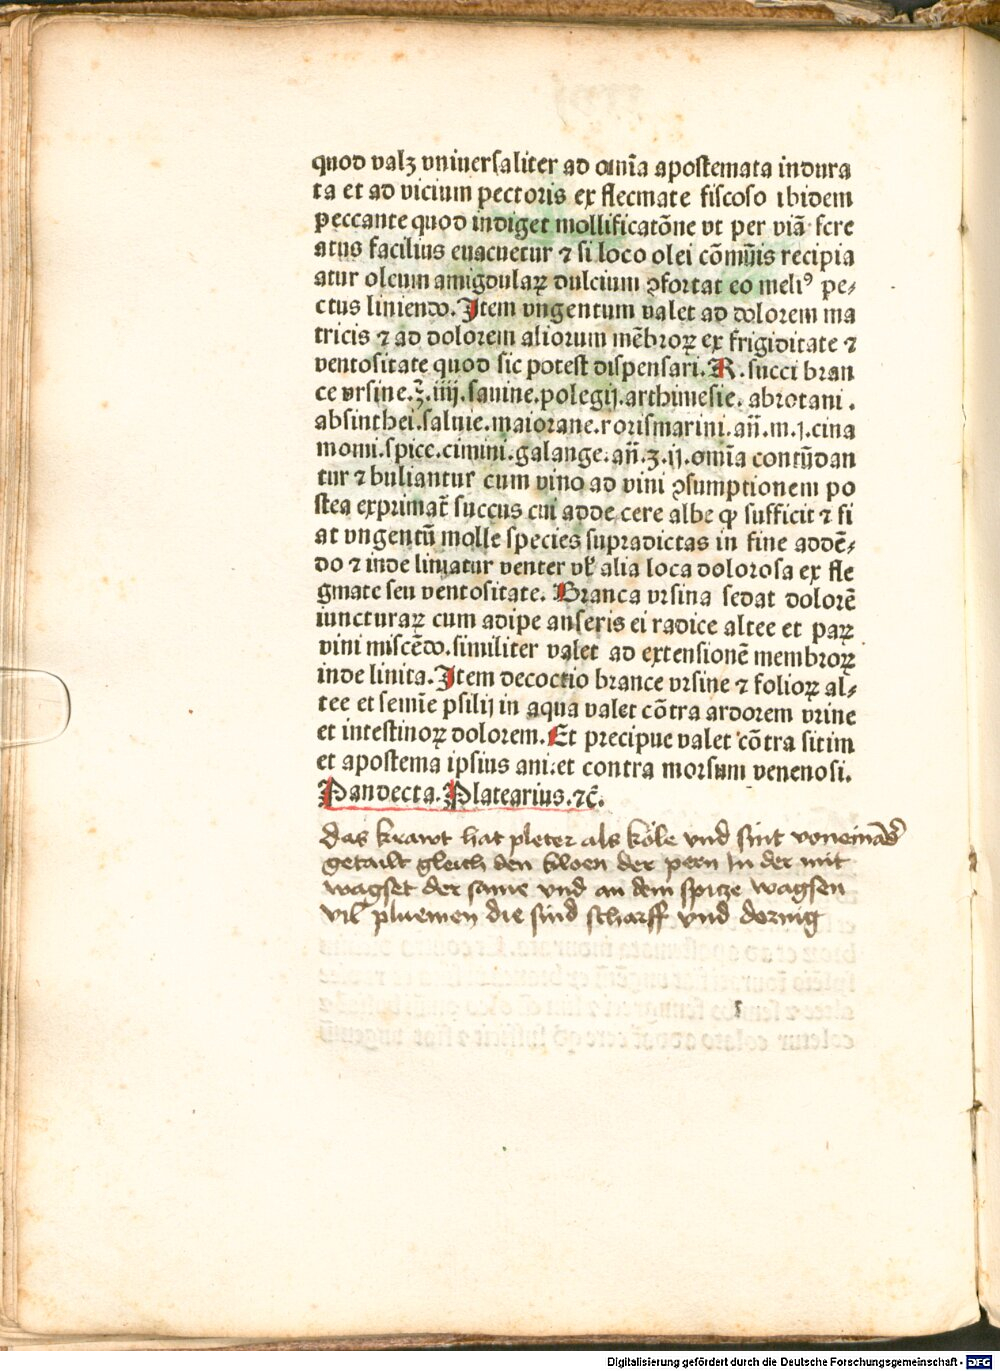 quod valꝫ vniuersaliter ad om̄ia apostemata indura
ta et ad vicium pectoris ex flecmate fiscoso ibidem
peccante quod indiget mollificatōne vt per viā fcre
atus facilius euacuetur ⁊ si loco olei cōmūis recipia
atur oleum amigdulaꝝ dulcium ꝯfortat eo meliꝰ pe⸗
ctus liniendo. Item vngentum valet ad dolorem ma
tricis ⁊ ad dolorem aliorum mēbroꝝ ex frigiditate ⁊
ventositate quod sic potest dispensari. R. succi bran
ce vrsine.ʒ.iiij.sauine.polegij.arthimesie. abrotani.
absinthei.saluie.maiorane.rorismarini.añ.m.j.cina
momi.spice.cimini.galange.añ.ʒ.ij.om̄ia contūdan
tur ⁊ buliantur cum vino ad vini ꝯsumptionem po
stea exprimat̄ succus cui adde cere albe ꝙ sufficit ⁊ fi
at vngentū molle species supradictas in fine addē⸗
do ⁊ inde liniatur venter vl̕ alia loca dolorosa ex fle
gmate seu ventositate. Branca vrsina sedat dolorē
iuncturaꝝ cum adipe anseris ei radice altee et paꝝ
vini miscēdo.similiter valet ad extensionē membroꝝ
inde linita. Item decoctio brance vrsine ⁊ folioꝝ al⸗
tee et semīe psilij in aqua valet cōtra ardorem vrine
et intestinoꝝ dolorem. Et precipue valet cōtra sitim
et apostema ipsius ani.et contra morsum venenosi.
Pandecta. Platearius.⁊c̄.
das krawt hat pleter als köle vnd sint voneinād̕
getailt gleich den kloen der pern In der mit
wagset der same vnd an dem spitze wagsen
vil pluemen die sind scharff vnd dornig
Digitalisierung gefördert durch die Deutsche Forschungsgemeinschaft - DFG